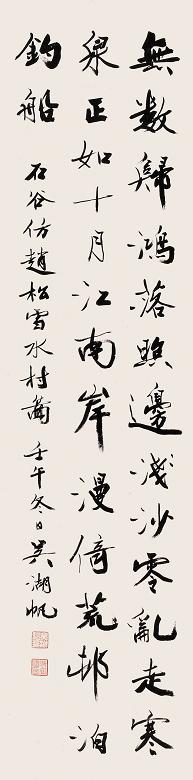 無數歸鴻落照邊淺沙零亂走寒
泉正如十月江南岸漫倚荒邨泊
釣船
石谷仿趙松雪水村圖 壬午冬日 吳湖帆